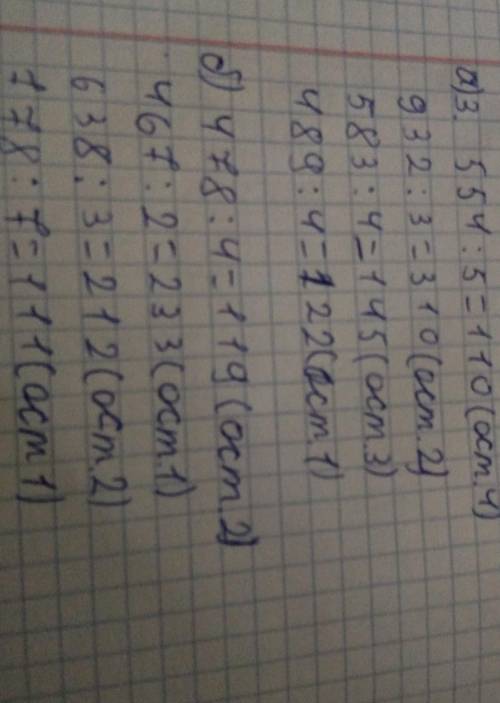 а)3. 554:5=110(ост.4)
932:3=310(ост.2)
583:4=145(ост.3)
489:4=122(ост.1)
б) 478:4=119(ост.2)
467:2=233(ост.1)
638:3=212(ост.2)
778:7=111(ост.1)